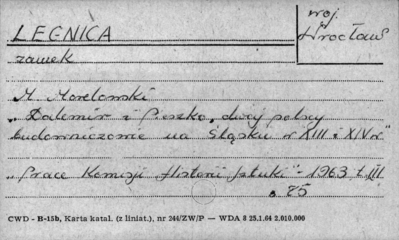 LEGNICA
woj.
Wrocław
zamek
M. Morelowski
"Dalemir i Pieszko, dwaj polscy
budowniczowie na Śląsku w XIII i XIV w."
"Prace Komisji Historii Sztuki" - 1963 t. III
s. 75
CWD - B-15b, Karta katal. (z liniat.), nr 244/ZW/P — WDA 8 25.1.64 2.010.000